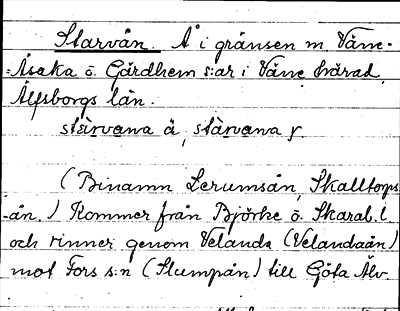 Starvån. Å i gränsen m. Väne-
-Åsaka o. Gärdhem s:ar i Väne härad,
Älfsborgs län.
stàrvana ä, stàrvana f.
(Binamn Lerumsån, Skalltorps-
-ån.) Kommer från Björke o. Skarab. l.
och rinner genom Velanda (Velandaån)
mot Fors s:n (Slumpån) till Göta Älv